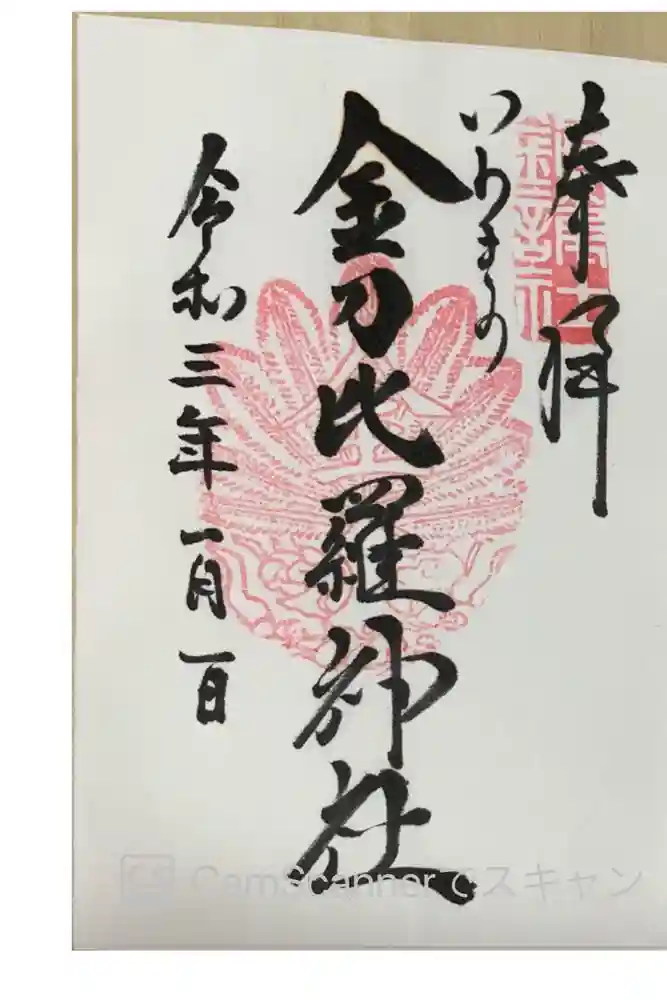 奉拝
いわまの
金刀比羅神社
令和三年一月一日
CamScannerでスキャン